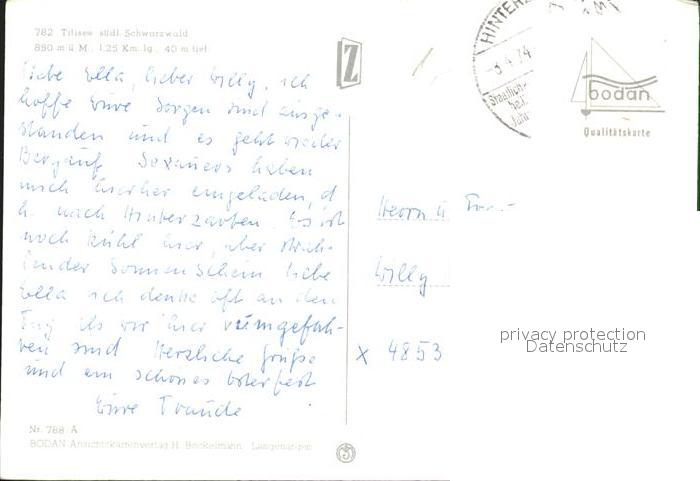 782 Titisee südl. Schwarzwald
850 m ü M. 1,25 Km. lg. 40 m tief
Liebe Ella, lieber Willy, ich
hoffe Eure Sorgen sind ausge-
standen und es geht wieder
Bergauf Sexauers haben
mich hierher eingeladen, d
h. nach Hinterzarten. Es ist
noch kühl hier, aber strah-
lender Sonnenschein liebe
Ella ich denke oft an den
Tag als wir hier rumgefah-
ren sind Herzliche Grüße
und ein schönes Osterfest
Eure Traude
Nr. 788 A
BODAN-Ansichtskartenverlag H. Bockelmann Langenargen
Z
HINTERZ
-3.4.74
Staatlich
bodan
Qualitätskarte
Herrn u. Frau
Willy
privacy protection
Datenschutz
x 4853